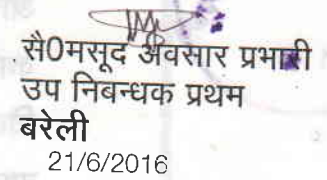 सै0मसूद अवसार प्रभारी
उप निबन्धक प्रथम
बरेली
21/6/2016